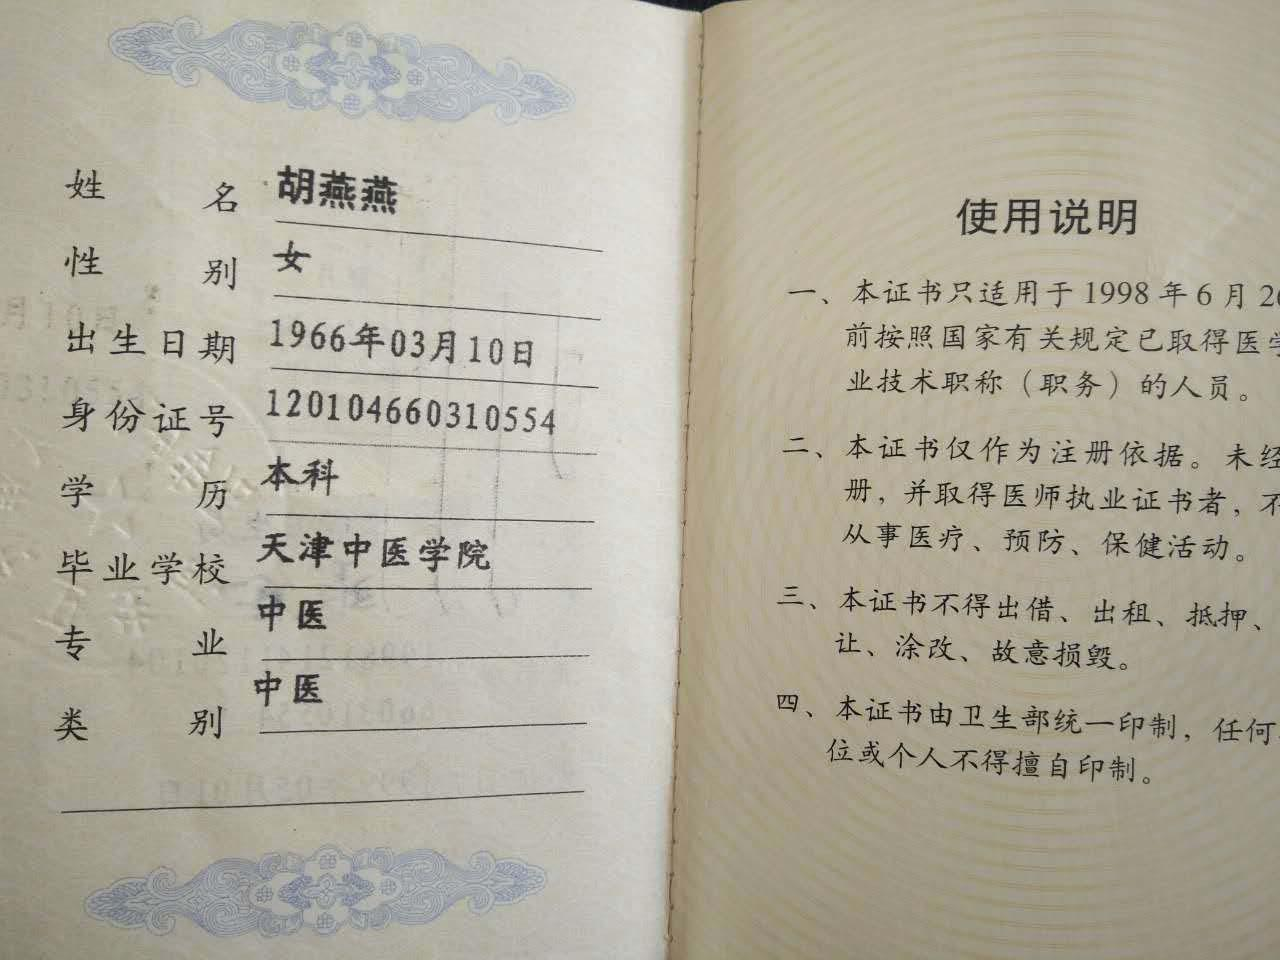 姓名 胡燕燕
性别 女
出生日期 1966年03月10日
身份证号 120104660310554
学历 本科
毕业学校 天津中医学院
专业 中医
类别 中医
使用说明
一、本证书只适用于1998年6月26
前按照国家有关规定已取得医学
业技术职称（职务）的人员。
二、本证书仅作为注册依据。未经
册，并取得医师执业证书者，不
从事医疗、预防、保健活动。
三、本证书不得出借、出租、抵押、
让、涂改、故意损毁。
四、本证书由卫生部统一印制，任何
位或个人不得擅自印制。